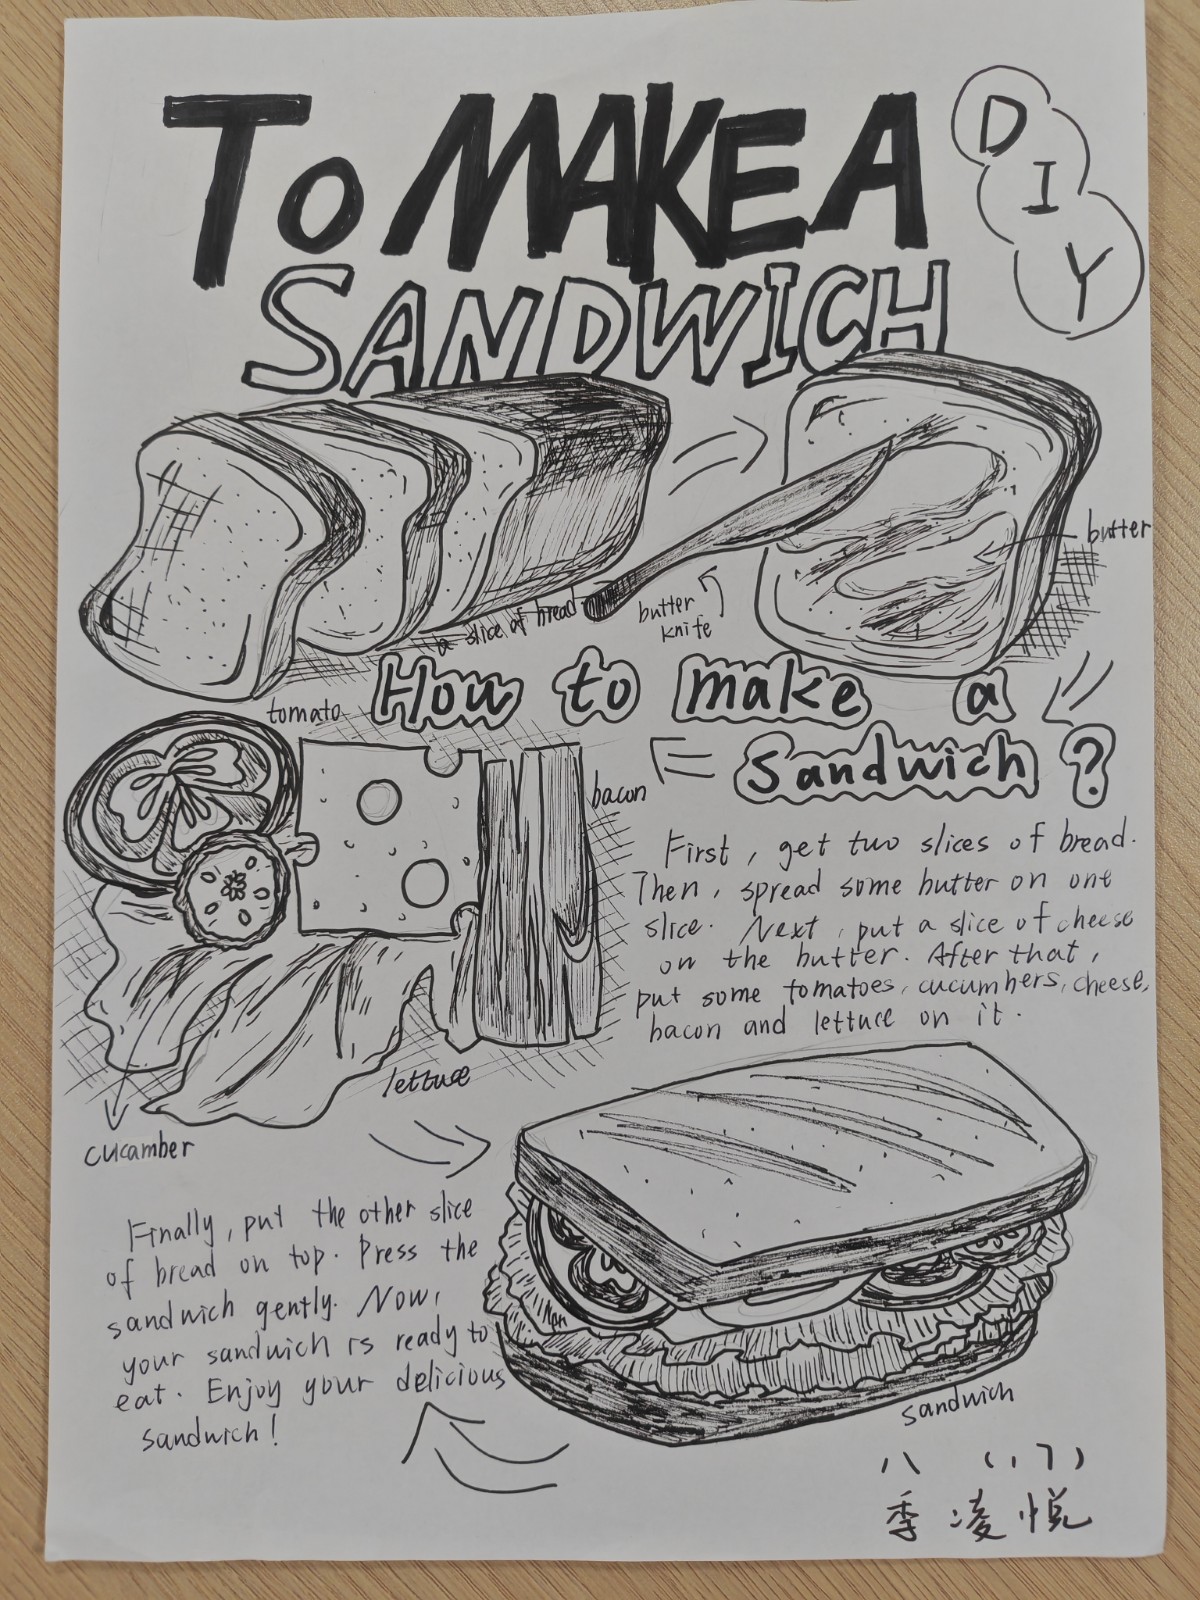 To MAKE A
SANDWICH
DIY
a slice of bread
butter
knife
butter
How to make a
Sandwich ?
tomato
bacon
lettuce
cucamber
First, get two slices of bread.
Then, spread some butter on one
slice. Next, put a slice of cheese
on the butter. After that,
put some tomatoes, cucumbers, cheese,
bacon and lettuce on it.
Finally, put the other slice
of bread on top. Press the
sandwich gently. Now,
your sandwich is ready to
eat. Enjoy your delicious
sandwich!
sandwich
八 (17)
季凌悦